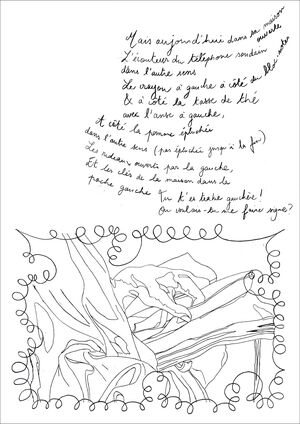 Mais aujourd'hui dans ta maison ouverte
L'écouteur du téléphone soudain
dans l'autre sens
Le crayon à gauche à côté du bloc-notes
& à côté la tasse de thé
avec l'anse à gauche,
A côté la pomme épluchée
dans l'autre sens (pas épluchée jusqu'à la fin)
Les rideaux ouverts par la gauche,
Et les clés de la maison dans la
poche gauche Tu t'es trahie gauchère!
Ou voulais-tu me faire signe?